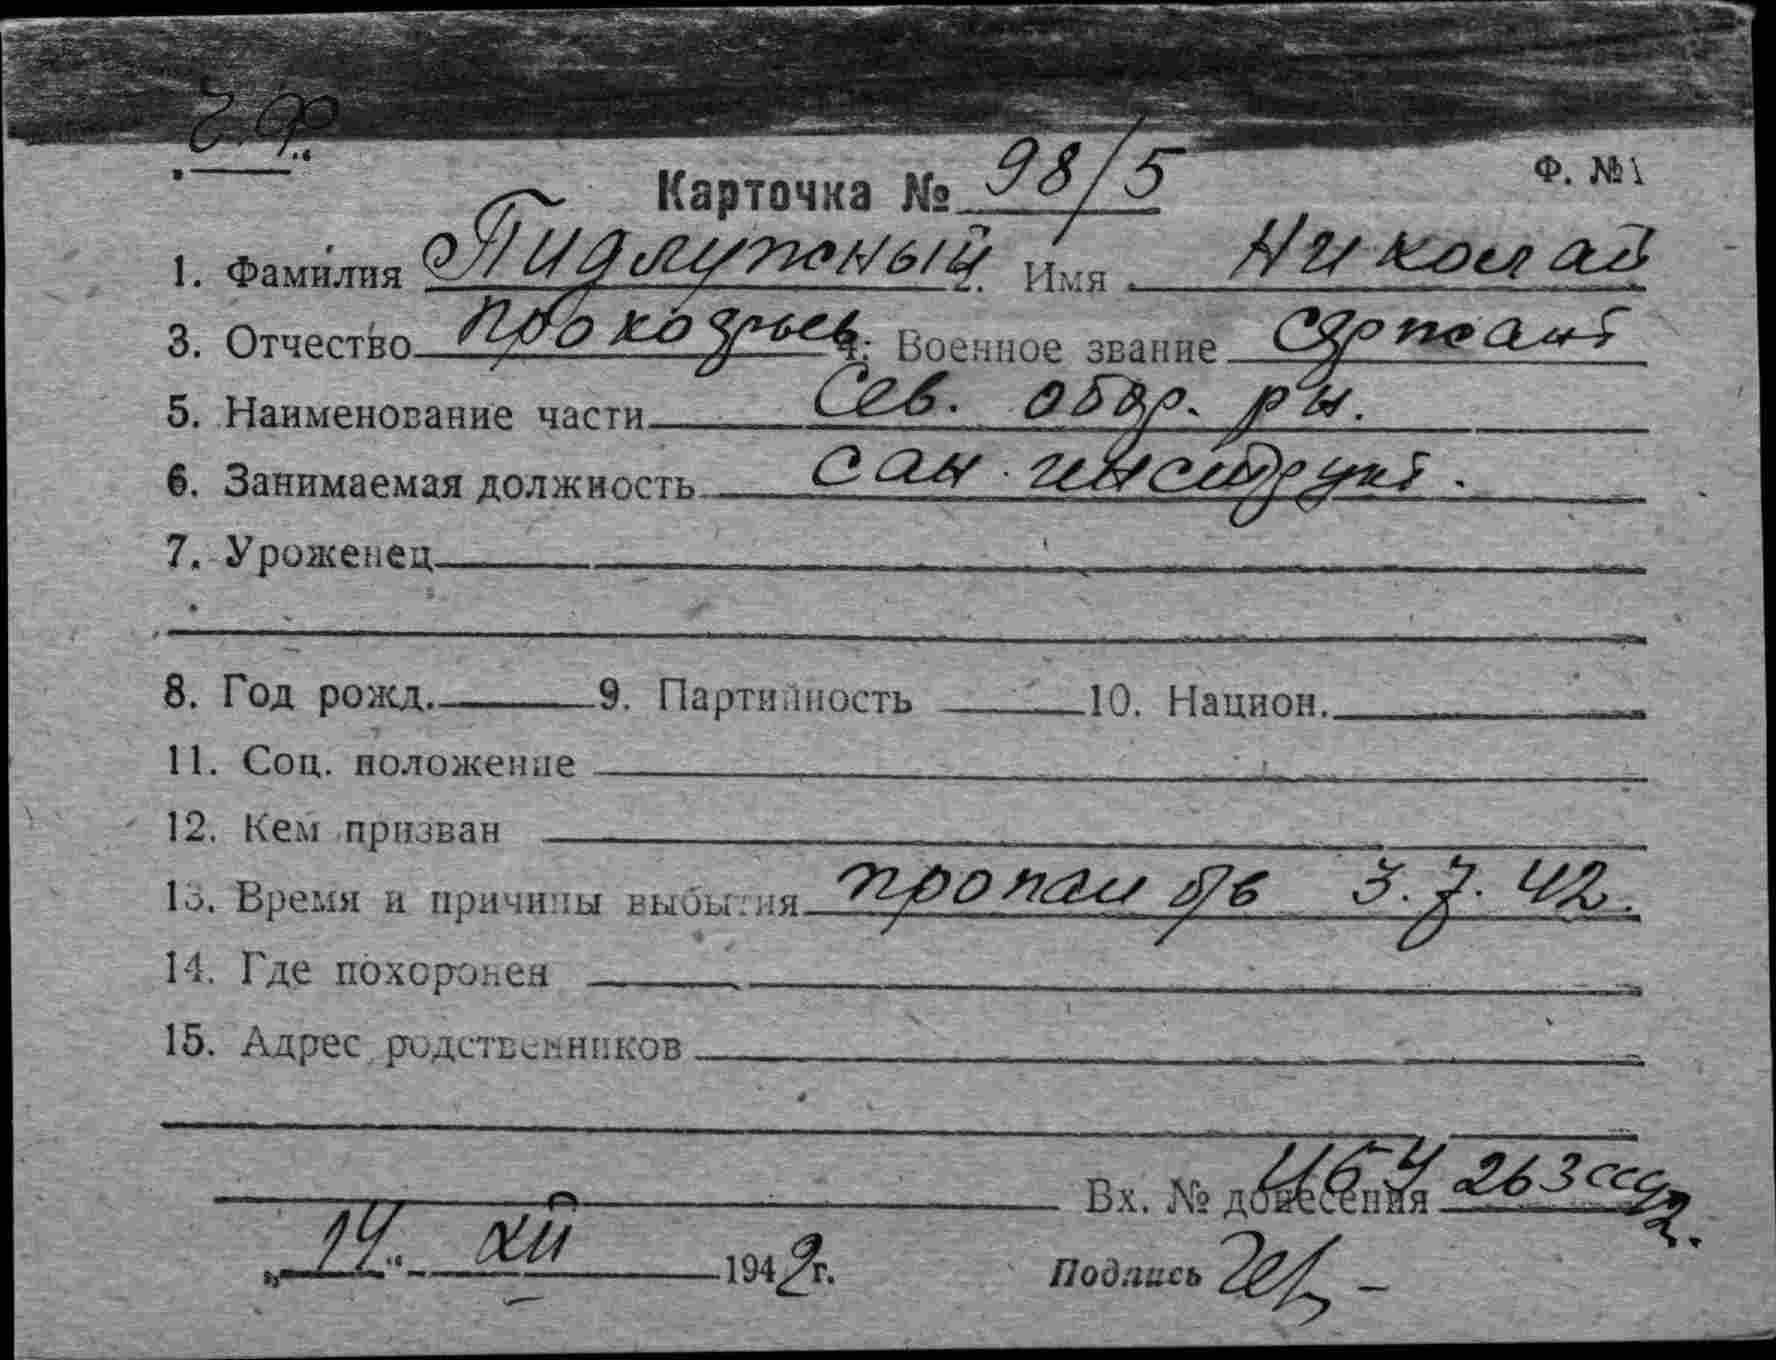 Ч.Ф.
Карточка № 98/5 Ф. №1
1. Фамилия Пидлужный 2. Имя Николай
3. Отчество 4. Военное звание сержант
5. Наименование части Сев. обор. р-н.
6. Занимаемая должность сан. инструкт.
7. Уроженец
8. Год рожд. 9. Партийность 10. Национ.
11. Соц. положение
12. Кем призван
13. Время и причины выбытия пропал б/в 3.7.42.
14. Где похоронен
15. Адрес родственников
Вх. № донесения 263
„14“ XII 1942г. Подпись